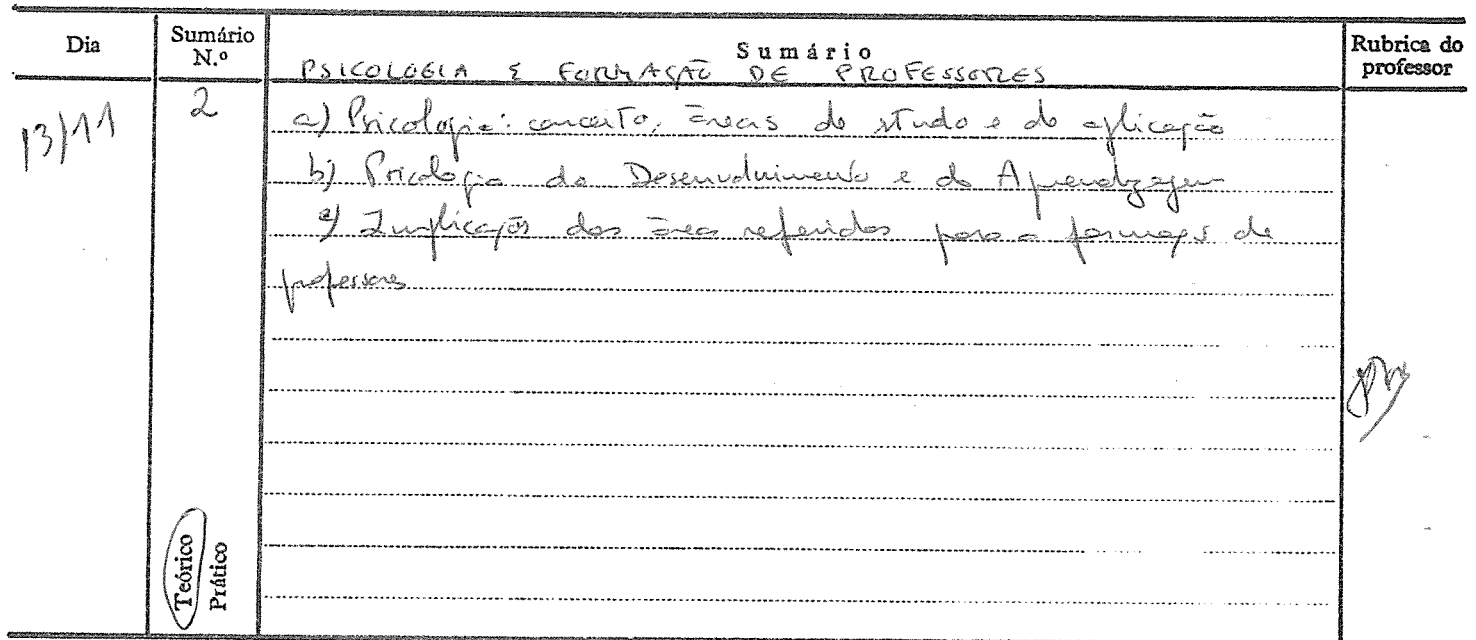 Dia
Sumário N.º
Sumário
Rubrica do professor
PSICOLOGIA E FORMAÇÃO DE PROFESSORES
13/11
2
a) Psicologia: conceito, áreas de estudo e de aplicação
b) Psicologia do Desenvolvimento e da Aprendizagem
c) Implicações das áreas referidas para a formação de
professores
Teórico
Prático